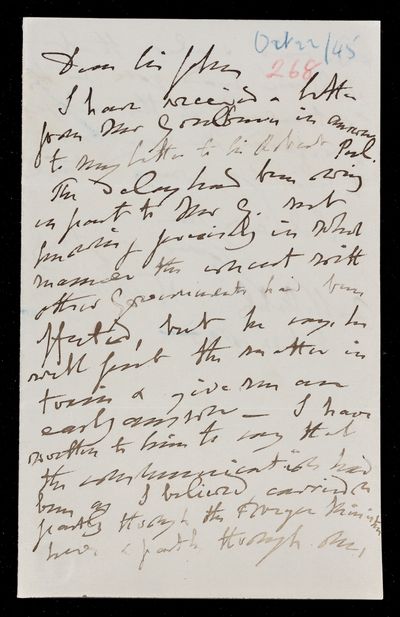 Oct 22/45
268
Dear Sir John
I have received a letter
from Mr Goulburn in answer
to my letter to Sir Robert Peel.
The delay had been owing
in part to Mr G. not
knowing precisely in what
manner the concert with
other Governments had been
effected, but he says he
will put the matter in
train & give me an
early answer — I have
written to him to say that
the communications had
been as I believed carried on
partly through the Foreign Minister
here & partly through me,